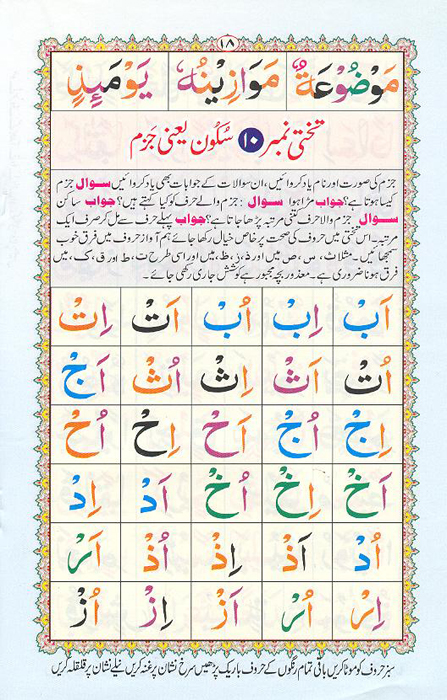 ۱۸
مَوْضُوْعَةٌ مَوَازِيْنُهٗ يَوْمَئِذٍ
تختی نمبر ۱۰ سُکُون یعنی جَزم
جزم کی صورت اور نام یاد کروائیں، ان سوالات کے جوابات بھی یاد کروائیں سوال جزم
کیسا ہوتا ہے؟ جواب مڑا ہوا سوال: جزم والے حرف کو کیا کہتے ہیں؟ جواب ساکن
سوال جزم والا حرف کتنی مرتبہ پڑھا جاتا ہے؟ جواب پہلے حرف سے مل کر صرف ایک
مرتبہ۔ اس تختی میں حروف کی صحت پر خاص خیال رکھا جائے، ہم آواز حروف میں فرق خوب
سمجھائیں۔ مثلا ث، س، ص میں اور ذ، ز، ظ، میں اور اسی طرح ت، ط اور ق، ک، میں
فرق ہونا ضروری ہے۔ معذور بچہ مجبور ہے کوشش جاری رکھی جائے۔
اَبْ اِبْ اُبْ اَتْ اِتْ
اُتْ اَثْ اِثْ اُثْ اَجْ
اِجْ اُجْ اَحْ اِحْ اُحْ
اَخْ اِخْ اُخْ اَدْ اِدْ
اُدْ اَذْ اِذْ اُذْ اَرْ
اِرْ اُرْ اَزْ اِزْ اُزْ
سبز حروف کو موٹا کریں باقی تمام رنگوں کے حروف باریک پڑھیں سرخ نشان پر غنہ کریں نیلے نشان پر قلقلہ کریں